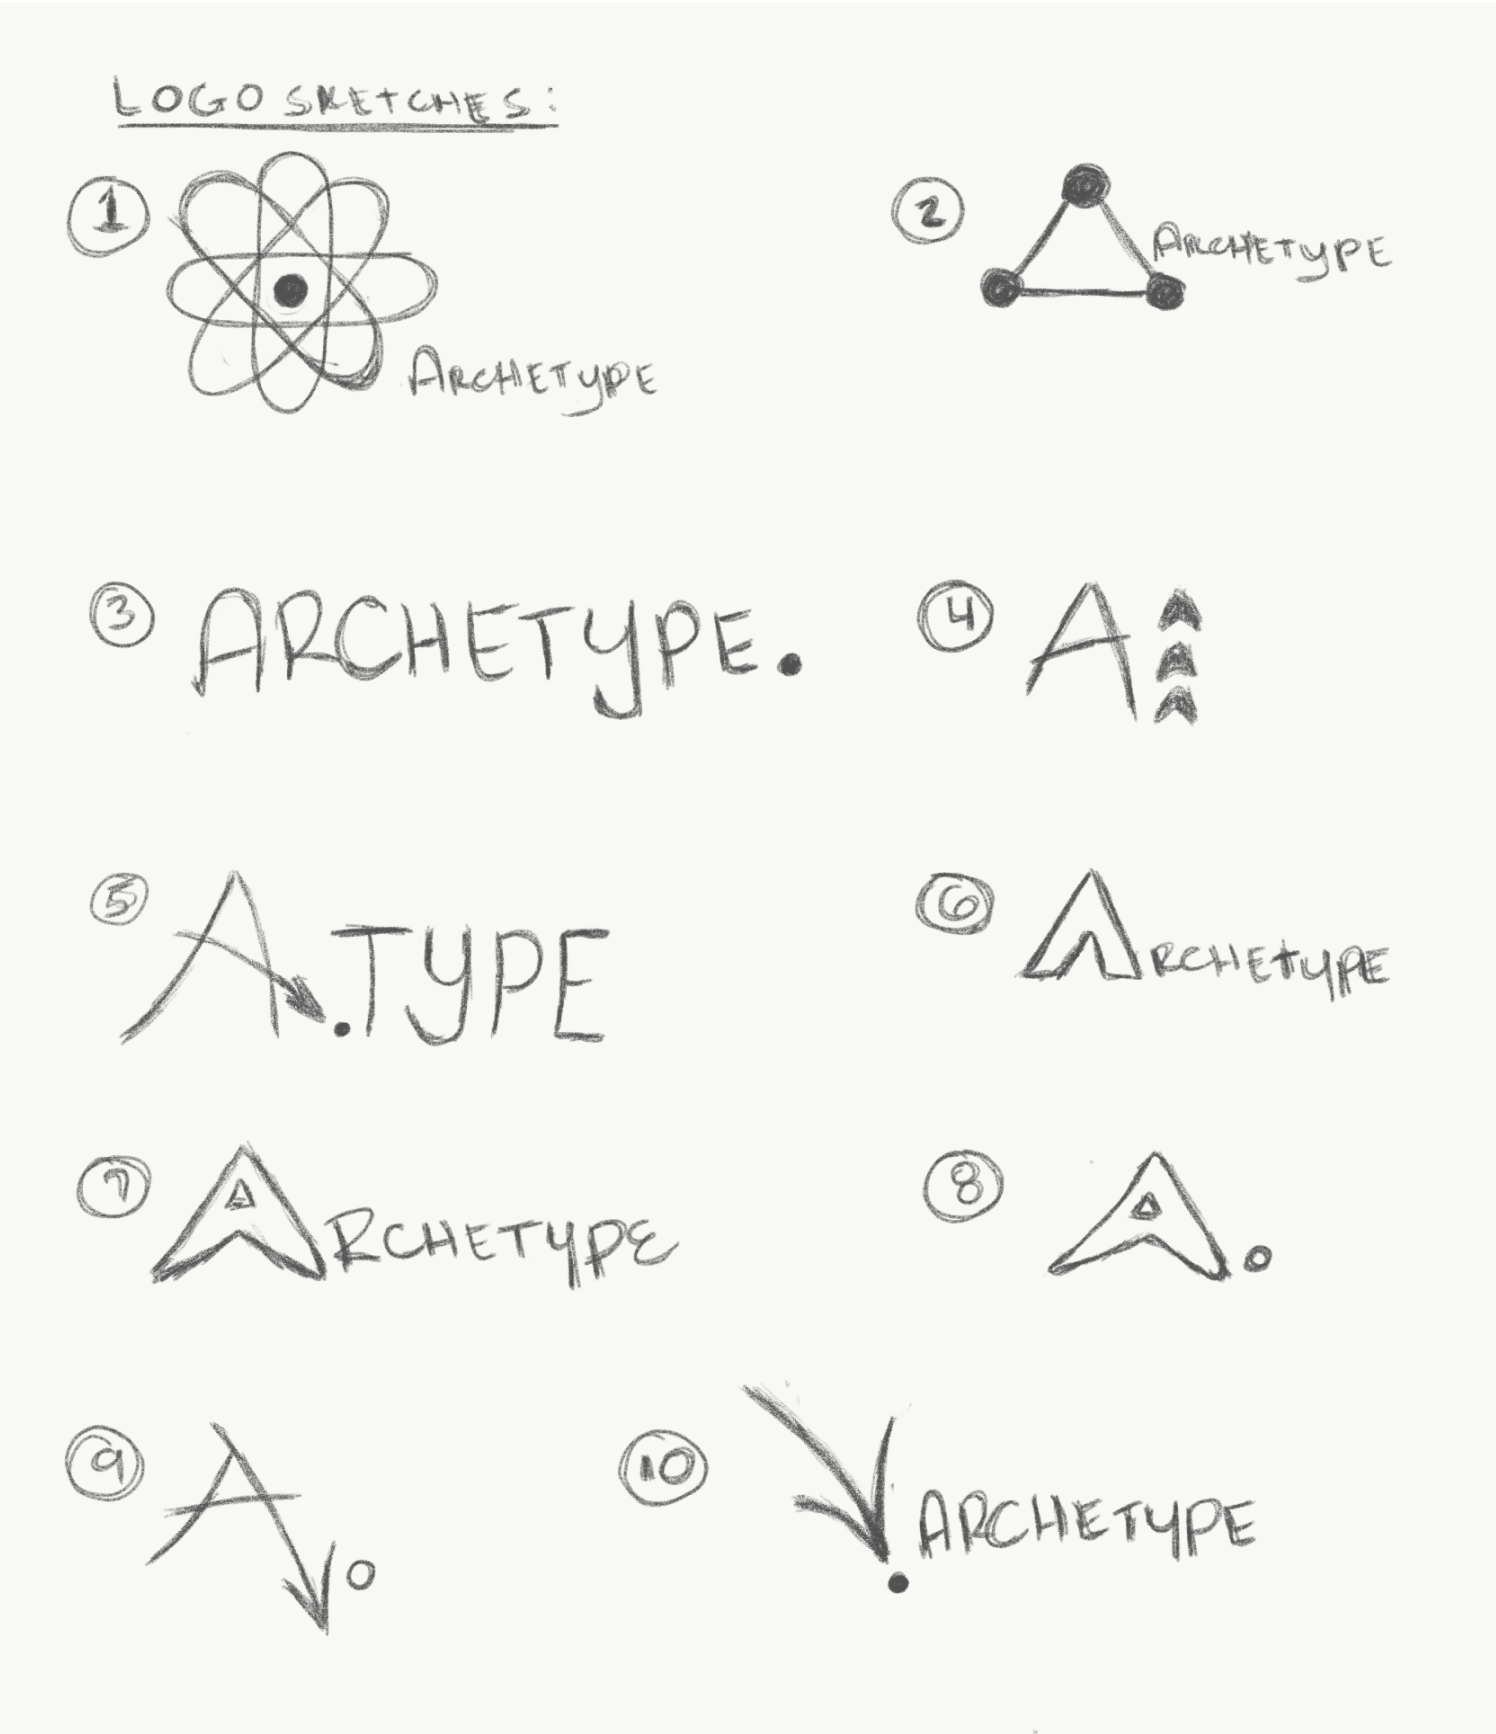 LOGO SKETCHES:
1
ARCHETYPE
2
ARCHETYPE
3
ARCHETYPE.
4
A
5
A.TYPE
6
ARCHETYPE
7
ARCHETYPE
8
A.
9
A.
10
ARCHETYPE